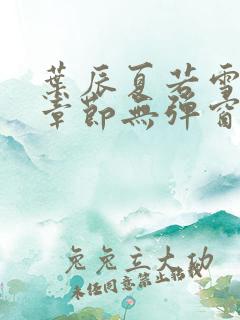 葉辰夏若雪
章節無彈窗
兔兔主大功
未经同意禁止转载